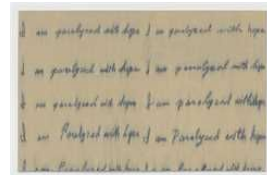 I am paralyzed with hope I am paralyzed with hope
I am paralyzed with hope I am paralyzed with hope
I am paralyzed with hope I am paralyzed with hope
I am Paralyzed with hope I am Paralyzed with hope
I am Paralyzed with hope I am Paralyzed with hope